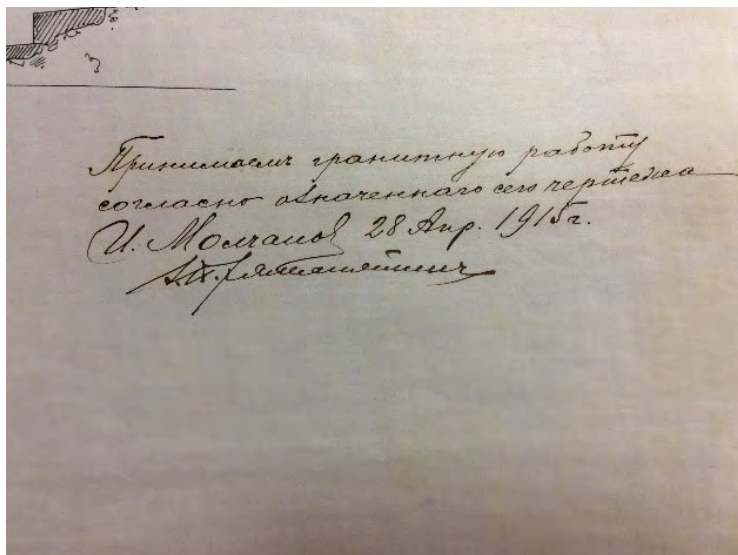 Принимаемъ гранитную работу
согласно означеннаго сего чертежа
И. Молчанов 28 Апр. 1915г.